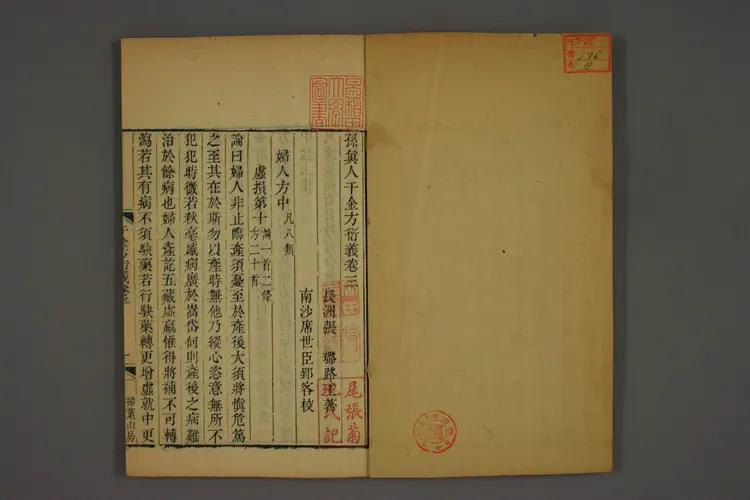 孫真人千金方衍義卷三
長洲張璐路玉著
南沙席世臣郢客校
婦人方中凡八類
虛損第十論一首二條方二十首
論曰婦人非止臨產須憂至於產後大須將慎危篤
之至其在於斯勿以產時無他乃縱心恣意無所不
犯犯時微若秋毫感病廣於嵩岱何則產後之病難
治於餘病也婦人產訖五藏虛羸惟得將補不可轉
瀉若其有病不須駃藥若行駃藥轉更增虛就中更
掃葉山房
尾張菊
氏記
276